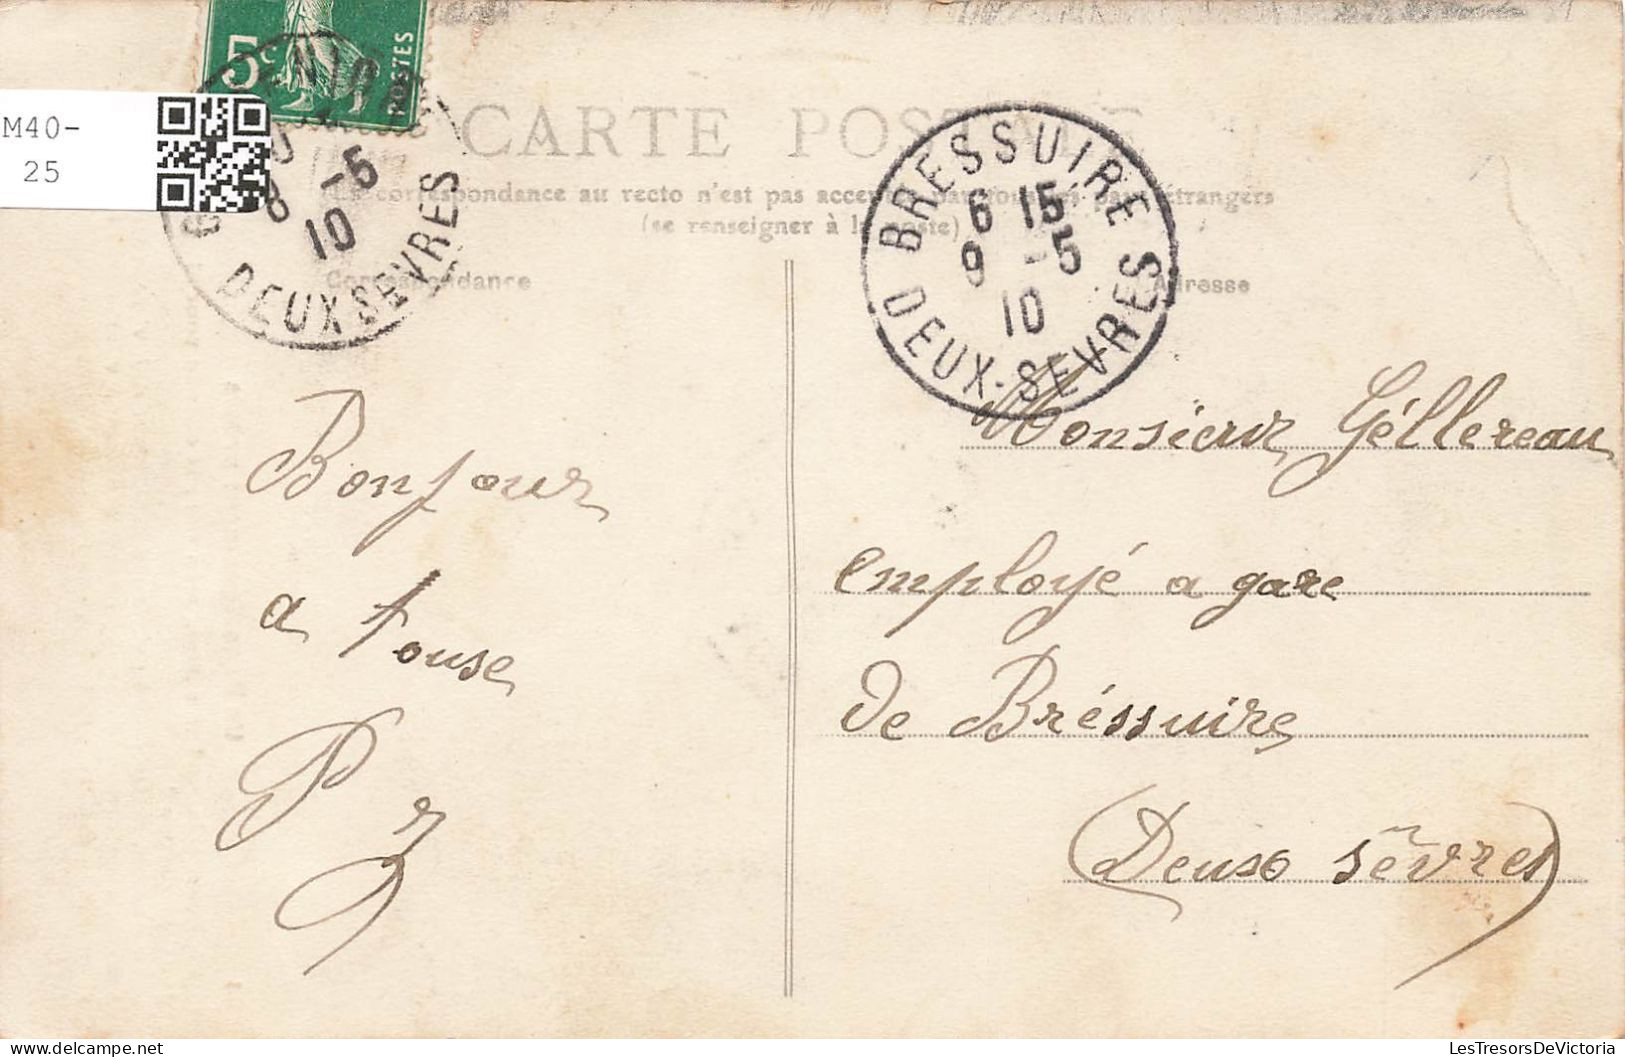 5c
POSTES
M40-
25
CARTE POSTALE
La correspondance au recto n'est pas acceptée par tous les pays étrangers
(se renseigner à la poste)
Correspondance
Adresse
8 -5
10
DEUX SEVRES
BRESSUIRE
6 15
9 -5
10
DEUX-SEVRES
Bonjour
a touse
Monsieur Géllereau
employé a gare
de Bréssuire
(Deuxo Sêvres)
LesTresorsDeVictoria